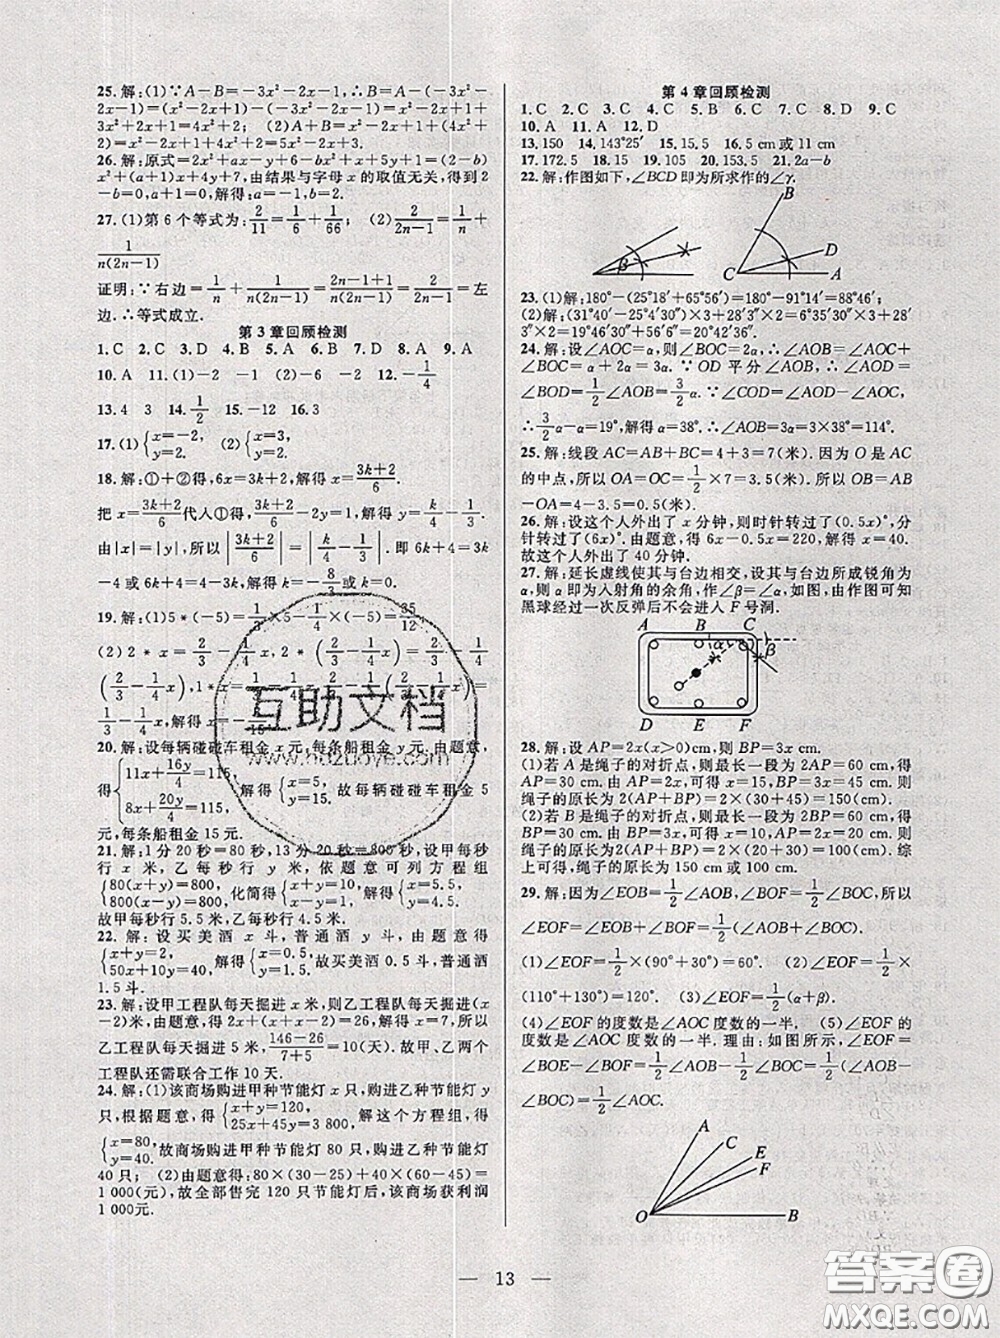 25.解:(1)∵A-B=-3x²-2x-1,∴B=A-(-3x²-
2x-1)=(x²-2x+1)-(-3x²-2x-1)=x²-2x+1+
3x²+2x+1=4x²+2;  (2)A+B=(x²-2x+1)+(4x²+2)=
x²-2x+1+4x²+2=5x²-2x+3.
26.解:原式=2x²+ax-y+6-bx²+3x-5y+1=(2-b)
x²+(a+1)x-6y+7,由结果与字母 x 的取值无关,得到 2
-b=0,a+1=0,解得:a=-1,b=2.
27.(1)第 6 个等式为:2/11=1/6+1/66;  (2)2/(2n-1)=1/n+
1/(n(2n-1))
证明:∵右边=1/n+1/(n(2n-1))=(2n-1+1)/(n(2n-1))=2/(2n-1)=左
边.∴等式成立.
第 3 章回顾检测
1.C 2.C 3.D 4.B 5.A 6.B 7.D 8.A 9.A
10.A 11.(1)-2 (2)-6 -2 12.-1/4
13.4 3 14.1/2 15.-12 16.3
17.(1){x=-2, y=2. (2){x=3, y=2.
18.解:①+②得,6x=3k+2,解得 x=(3k+2)/6.
把 x=(3k+2)/6代入①得,(3k+2)/6-2y=k,解得 y=-k/4-1/3.
由|x|=|y|,所以|(3k+2)/6|=|k/4-1/3|.即 6k+4=3k
-4或 6k+4=4-3k,解得 k=-8/3或 k=0.
19.解:(1)5*(-5)=1/3×5-1/4×(-5)=35/12
20.解:设每辆碰碰车租金 x 元,每条船租金 y 元.由题意,
得{11x+16y/4=115, 8x+20y/4=115. 解得{x=5, y=15. 故每辆碰碰车租金 5
元,每条船租金 15 元.
21.解:1 分 20 秒=80 秒,13 分 20 秒=800 秒,设甲每秒
行 x 米,乙每秒行 y 米,依题意可列方程组
{80(x+y)=800, 800(x-y)=800. 化简得{x+y=10, x-y=1. 解得{x=5.5, y=4.5.
故甲每秒行 5.5 米,乙每秒行 4.5 米.
22.解:设买美酒 x 斗,普通酒 y 斗,由题意得
{x+y=2, 50x+10y=40. 解得{x=0.5, y=1.5. 故买美酒 0.5 斗,普通酒
1.5 斗.
23.解:设甲工程队每天掘进 x 米,则乙工程队每天掘进(x
-2)米,由题意,得 2x+(x+x-2)=26,解得 x=7,所以
乙工程队每天掘进 5 米,(146-26)/(7+5)=10(天).故甲、乙两个
工程队还需联合工作 10 天.
24.解:(1)该商场购进甲种节能灯 x 只,购进乙种节能灯 y
只,根据题意,得{x+y=120, 25x+45y=3 800, 解这个方程组,得
{x=80, y=40. 故商场购进甲种节能灯 80 只,购进乙种节能灯
40 只; (2)由题意得:80×(30-25)+40×(60-45)=
1 000(元),故全部售完 120 只节能灯后,该商场获利润
1 000元.
第 4 章回顾检测
1.C 2.C 3.C 4.C 5.B 6.C 7.C 8.D 9.C
10.A 11.A 12.D
13.150 14.143°25′ 15.15.5 16.5 cm或 11 cm
17.172.5 18.15 19.105 20.153.5 21.2a-b
22.解:作图如下,∠BCD 即为所求作的∠γ.
β B D C A
23.(1)解:180°-(25°18′+65°56′)=180°-91°14′=88°46′;
(2)解:(31°40′-25°43′28″)×2+28°43′=5°56′32″
×2+28°43′=11°53′4″+28°43′
24.解:设∠AOC=α,则∠BOC=2∠AOC=2α,∴∠AOB=∠AOC+
∠BOC=α+2α=3α.∵OD 平分∠AOB,∴∠AOD=
∠BOD=1/2∠AOB=3/2α.∵∠COD=∠AOD-∠AOC,
∴3/2α-α=19°,解得 α=38°,∠AOB=3α=3×38°=114°.
25.解:线段 AC=AB+BC=4+3=7(米).因为 O 是 AC
的中点,所以 OA=OC=1/2×7=3.5(米).所以 OB=AB
-OA=4-3.5=0.5(米).
26.解:设这个人外出了 x 分钟,则时针转过了(0.5x)°,分
针转过了(6x)°.由题意,得 6x-0.5x=220,解得 x=40.
故这个人外出了 40 分钟.
27.解:延长虚线使其与台边相交,设其与台边所成锐角为
α,则 α 即为入射角的余角,作∠β=∠α,如图,由作图可知
黑球经过一次反弹后不会进入 F 号洞.
A B C α β D E F
28.解:设 AP=2x(x>0)cm,则 BP=3x cm.
(1)若 A 是绳子的对折点,则最长一段为 2AP=60 cm,得
AP=30 cm.由 2x=30,可得 x=15,则 BP=45 cm,所以
绳子的原长为 2(AP+BP)=2×(30+45)=150(cm).
(2)若 B 是绳子的对折点,则最长一段为 2BP=60 cm,得
BP=30 cm.由 3x=30,可得 x=10,则 AP=20 cm.所以
绳子的原长为 2(AP+BP)=2×(20+30)=100(cm).综
上可得,绳子的原长为 150 cm 或 100 cm.
29.解:因为∠EOB=1/2∠AOB,∠BOF=1/2∠BOC,所以
∠EOF=∠EOB-∠BOF=1/2(∠AOB-∠BOC).
(1)∠EOF=1/2×(90°+30°)=60°. (2)∠EOF=1/2×
(110°+130°)=120°. (3)∠EOF=1/2(α+β).
(4)∠EOF 的度数是∠AOC 度数的一半. (5)∠EOF 的
度数是∠AOC 度数的一半. 理由:如图所示,∠EOF=
∠BOE-∠BOF=1/2∠AOB-1/2∠BOC=1/2(∠AOB
-∠BOC)=1/2∠AOC.
A C E F O B
— 13 —
互助文档
答案圈
MXQE.COM